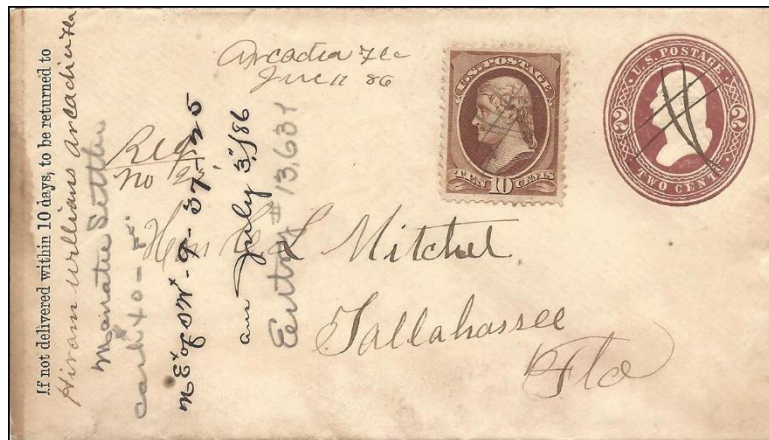 If not delivered within 10 days, to be returned to
Hiram Williams Arcadia Fla
Manatee
Cash 40
NE" of SW" - 9 - 37 - 25
ans July 3"/86
Entry # 13,631
Arcadia Fla
June 11 86
Reg
No 22
U.S. POSTAGE
TEN 10 CENTS
U.S. POSTAGE
2 2
TWO CENTS
Hon C L Mitchel
Tallahassee
Fla